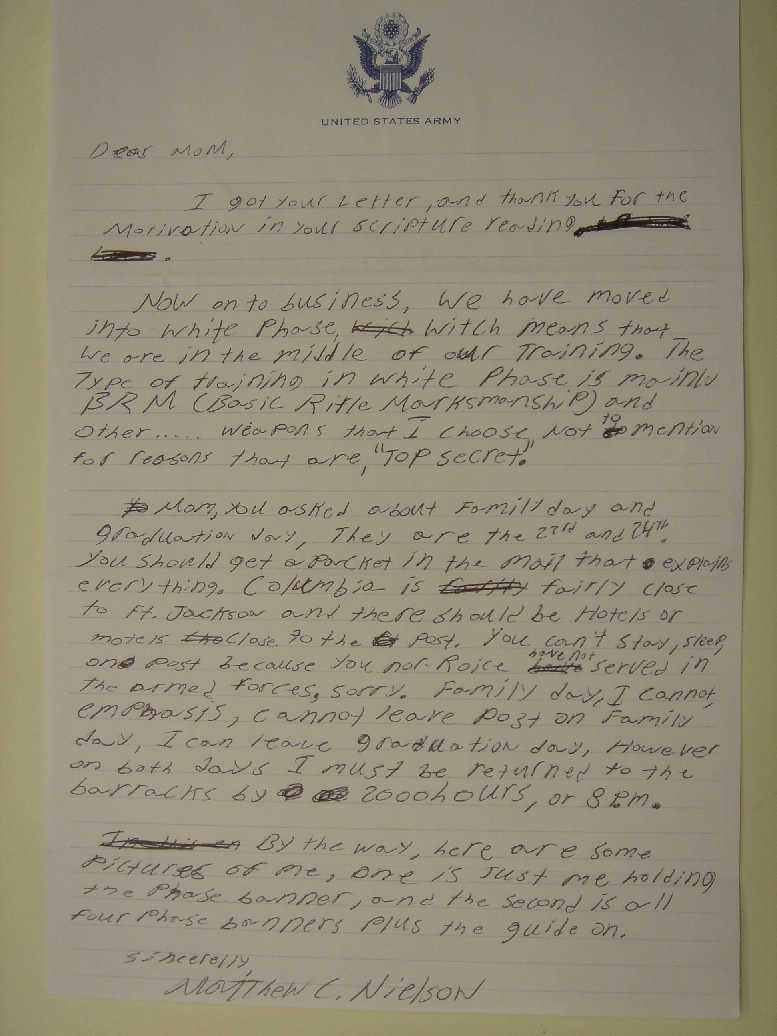 UNITED STATES ARMY
Dear Mom,
I got your Letter, and thank you for the
Motivation in your scripture reading
.
Now on to business, We have moved
into white Phase, witch means that
we are in the middle of our Training. The
Type of training in white Phase is mainly
BRM (Basic Rifle Marksmanship) and
other..... weapons that I choose Not to mention
for reasons that are, "Top secret."
Mom, you asked about Family day and
graduation day, They are the 23rd and 24th.
You should get a packet in the mail that explains
everything. Columbia is fairly close
to Ft. Jackson and there should be Hotels or
motels close to the Post. You can't stay, sleep,
on post because you nor Roice have not served in
the armed forces, sorry. Family day, I cannot,
emphasis, cannot leave post on Family
day, I can leave graduation day, However
on both days I must be returned to the
barracks by 2000hours, or 8 pm.
By the way, here are some
pictures of me, one is Just me holding
the Phase banner, and the second is all
four Phase banners plus the guide on.
sincerelly,
Matthew C. Nielson